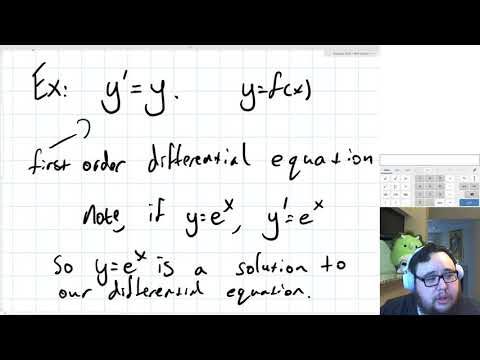 Ex: y' = y. y=f(x)
first order differential equation
Note, if y=eˣ, y'=eˣ
So y=eˣ is a solution to
our differential equation.